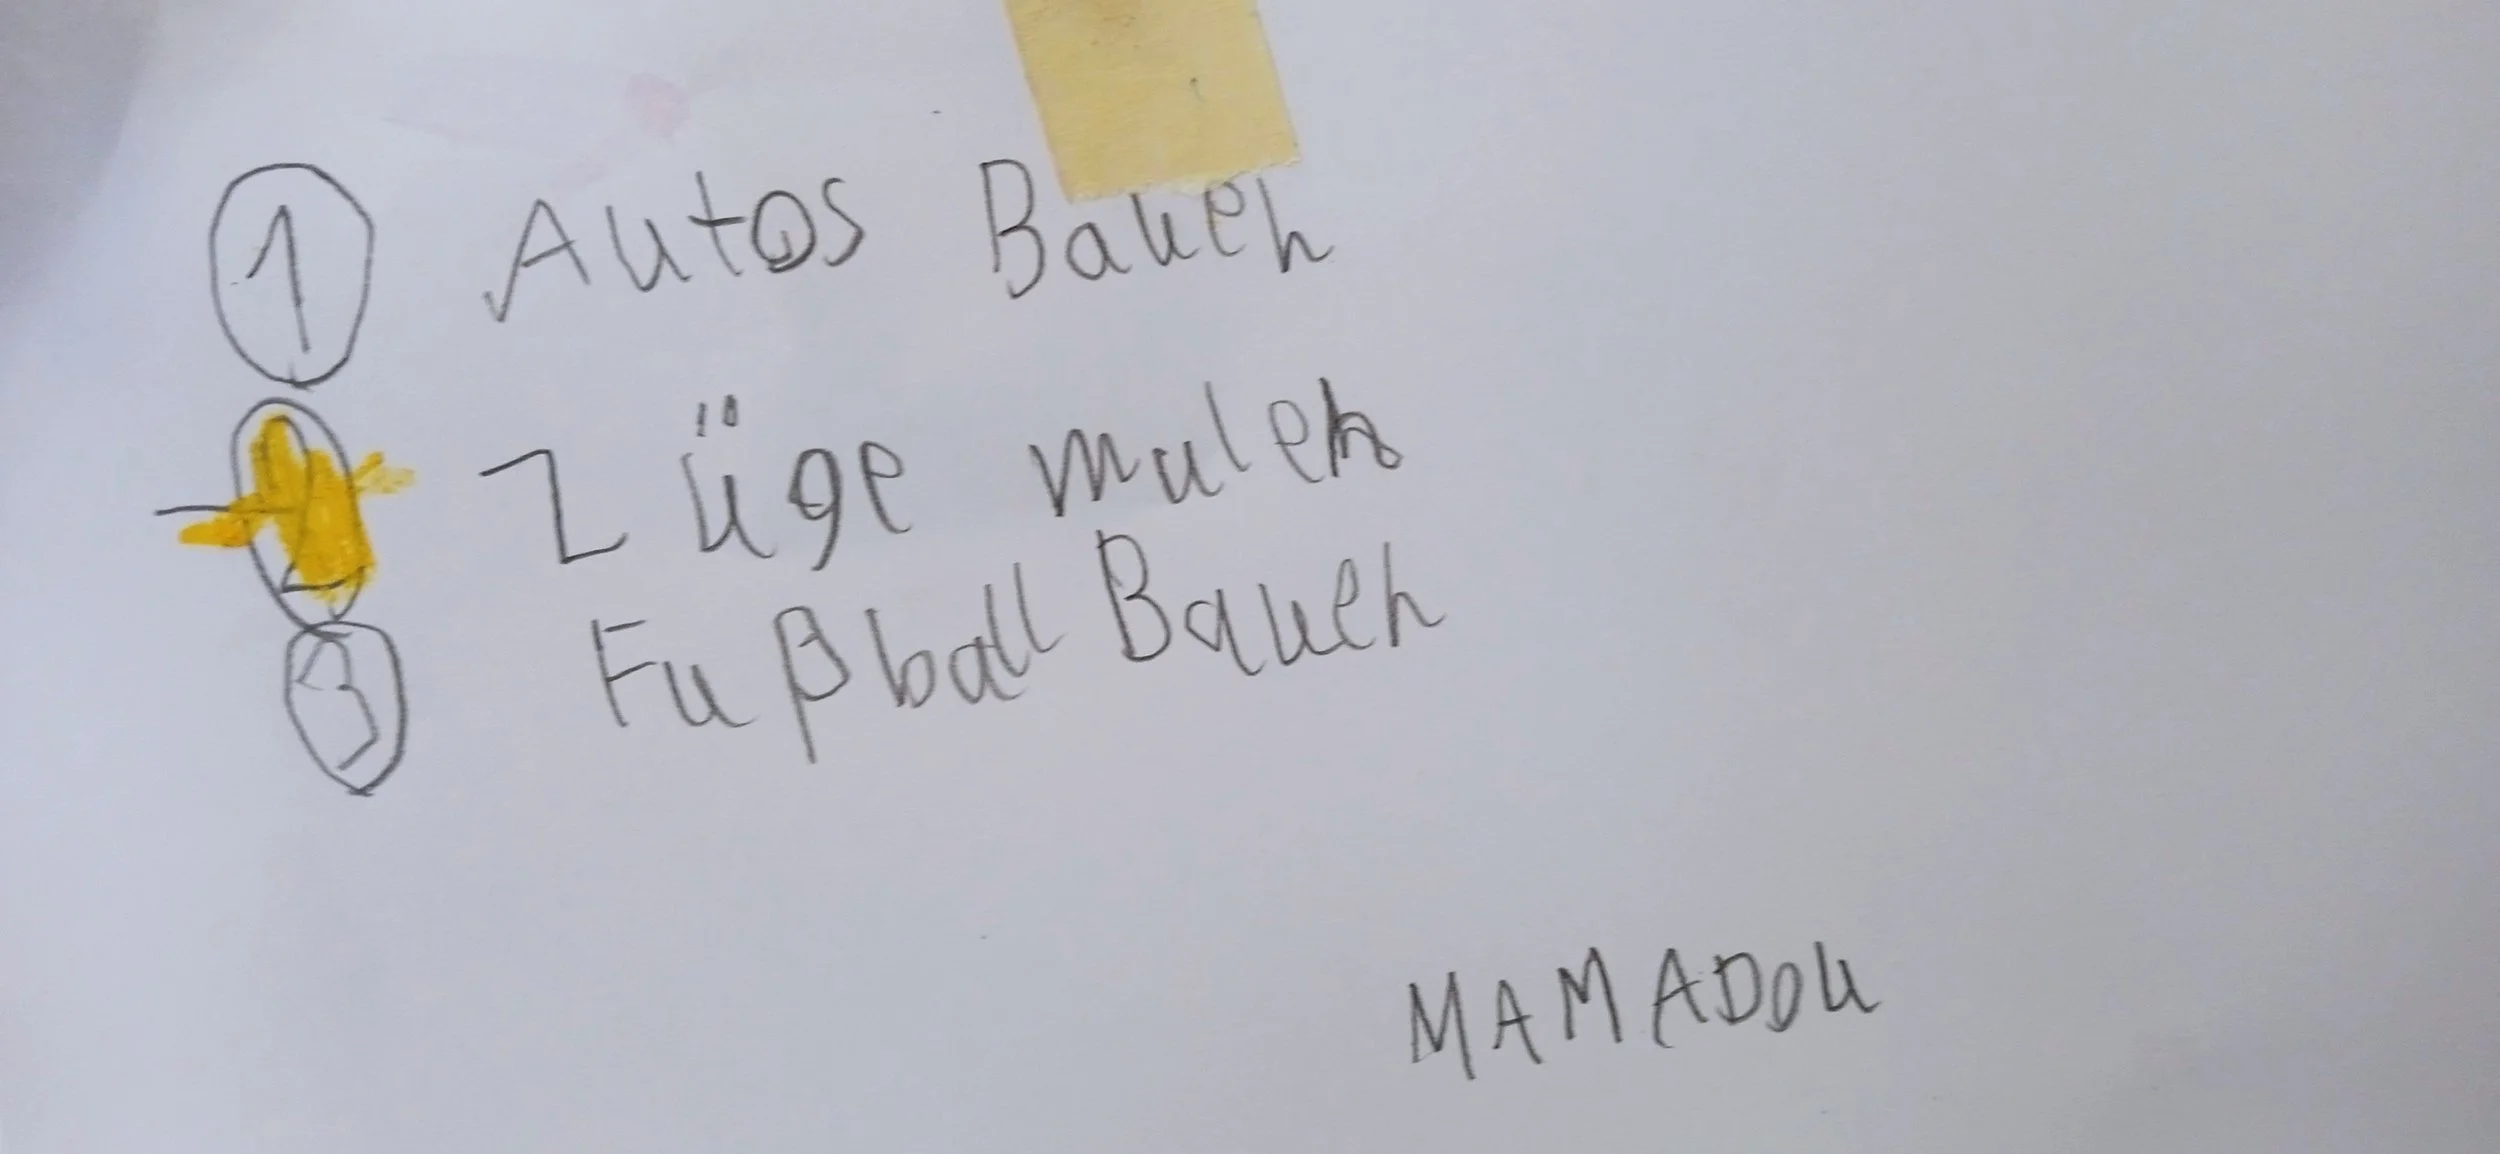 1 Autos Bauen
2 Züge malen
3 Fußball Bauen
MAMADOU